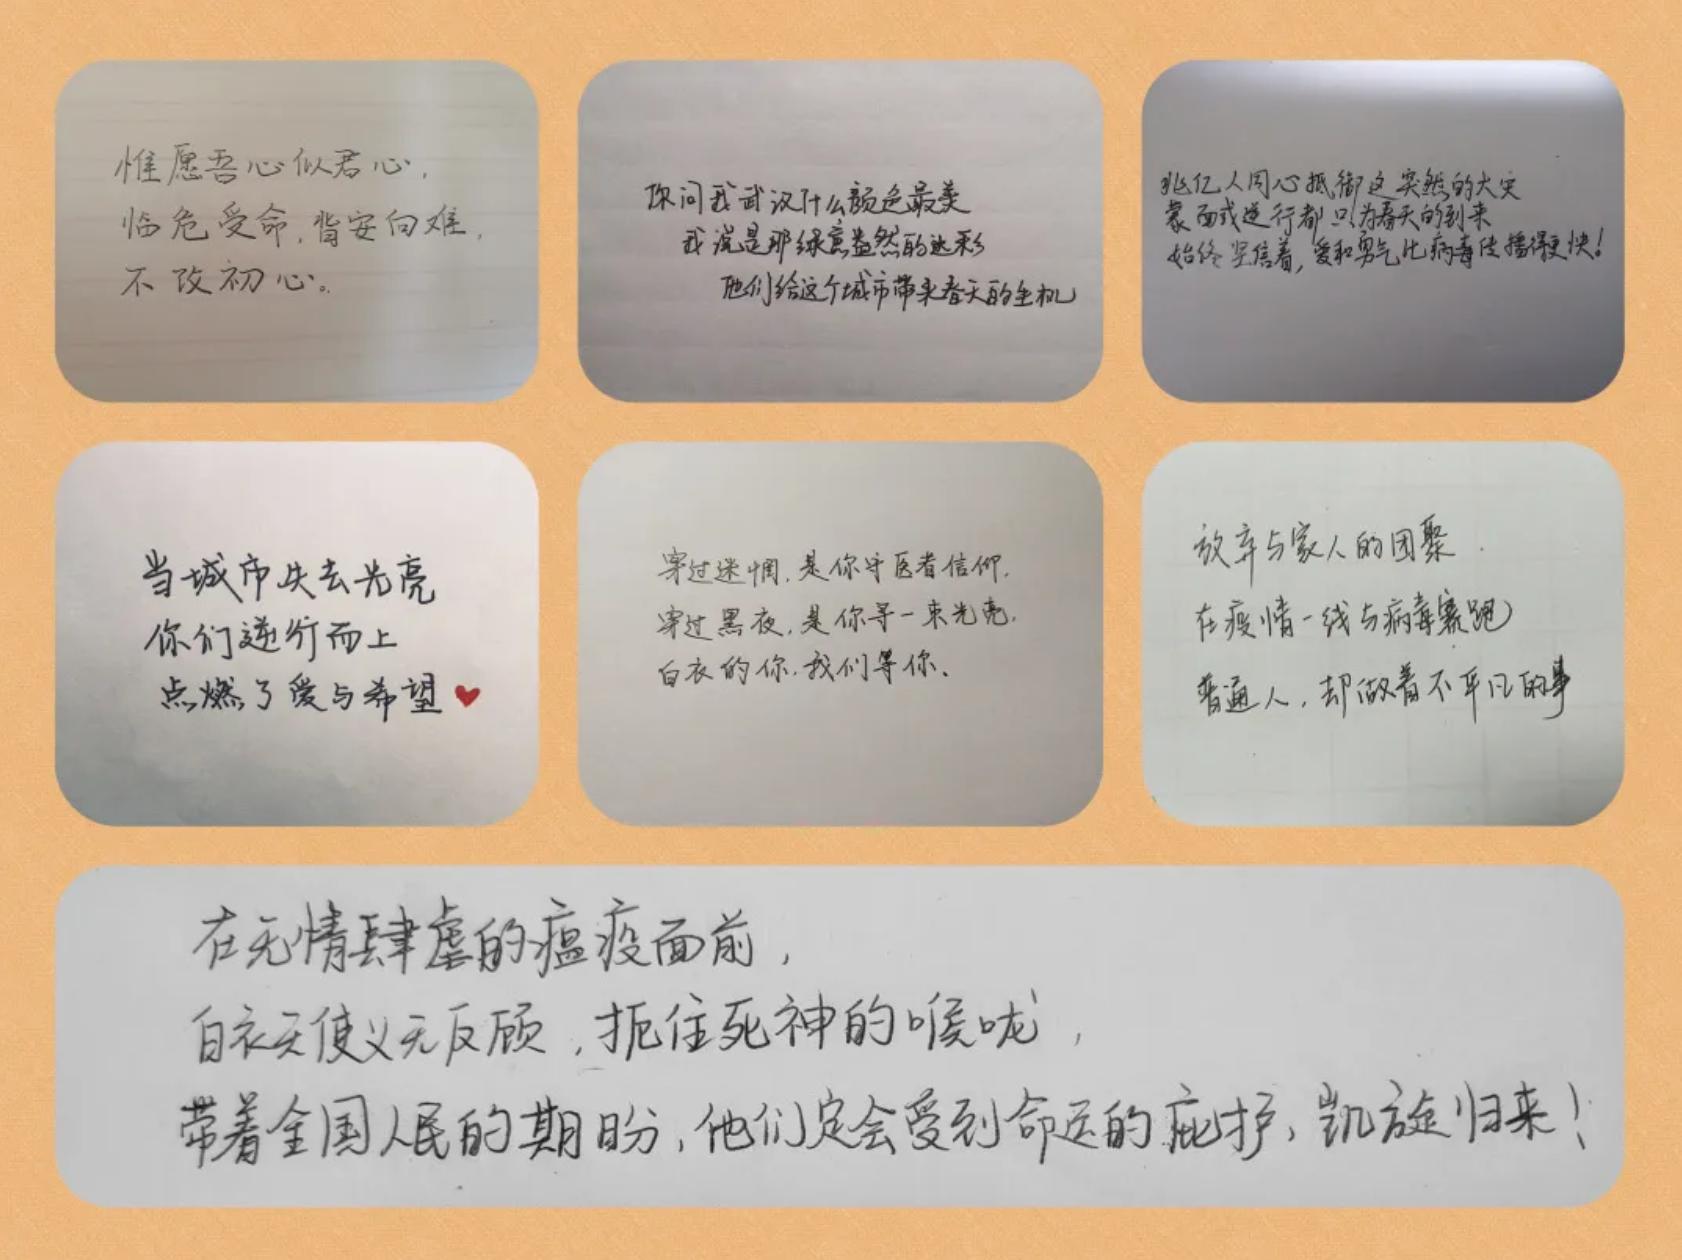 惟愿吾心似君心，
临危受命，背安向难，
不改初心。
你问我武汉什么颜色最美
我说是那绿意盎然的迷彩
他们给这个城市带来春天的生机
兆亿人同心抵御这突然的大灾
蒙面或逆行都只为春天的到来
始终坚信着，爱和勇气比病毒传播得更快！
当城市失去光亮
你们逆行而上
点燃了爱与希望
穿过迷惘，是你守医者信仰，
穿过黑夜，是你寻一束光亮，
白衣的你，我们等你、
放弃与家人的团聚
在疫情一线与病毒赛跑
普通人，却做着不平凡的事
在无情肆虐的瘟疫面前，
白衣天使义无反顾，扼住死神的喉咙，
带着全国人民的期盼，他们定会受到命运的庇护，凯旋归来！